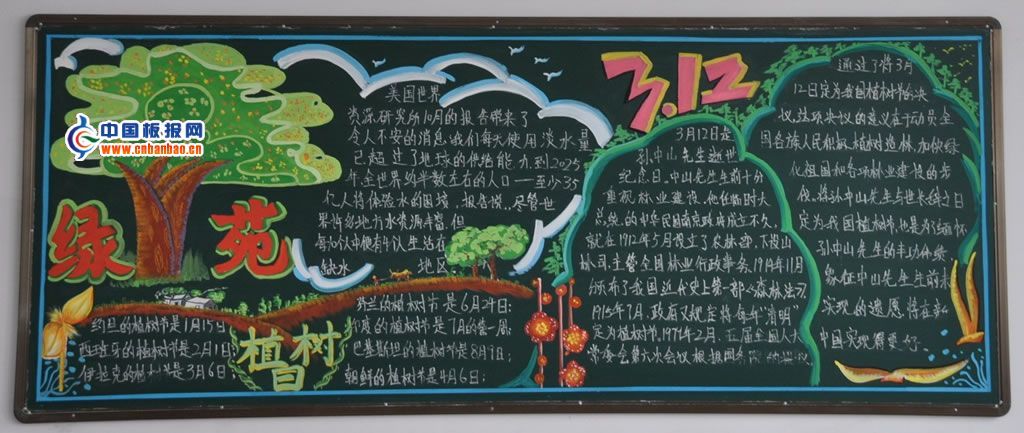 中国板报网
www.cnbanbao.cn
绿苑
美国世界
资源研究所10月的报告带来了
令人不安的消息:我们每天使用淡水量
已超过了地球的供给能力到2025
年,全世界约半数左右的人口——至少35
个人将体淡水的困境,报告说,尽管世
水资源丰富,但
人生活在
缺水 地区
约旦的植树节是1月15日
西班牙的植树节是2月1日;
伊拉克的植树节是3月6日;
植树日
芬兰的植树节是6月24日;
印度的植树节是7月的第一周;
巴基斯坦的植树节是8月7日;
朝鲜的植树节是4月6日;
3.12
3月12日是
孙中山先生逝世
纪念日。中山先生生前十分
重视林业建设。他任临时大
总统的中华民国南京政府成立不久,
就在1912年5月设立了农林部,下设山
林司,主管全国林业行政事务,1914年11月
颁布了我国近代史上第一部《森林法》
1915年7月,政府又规定将每年"清明"
定为植树节,1979年2月,五届全国人大
常委会第六次会议根据国务院
通过了将3月
12日定为我国植树节的决
议,这项决议的意义在于动员全
国各族人民积极植树造林,加快绿
化祖国和各项林业建设的步
伐,将孙中山先生与世长辞之日
定为我国植树节,也是为了缅怀
孙中山先生的丰功伟绩
象征中山先生生前未
实现的遗愿,将在新
中国实现